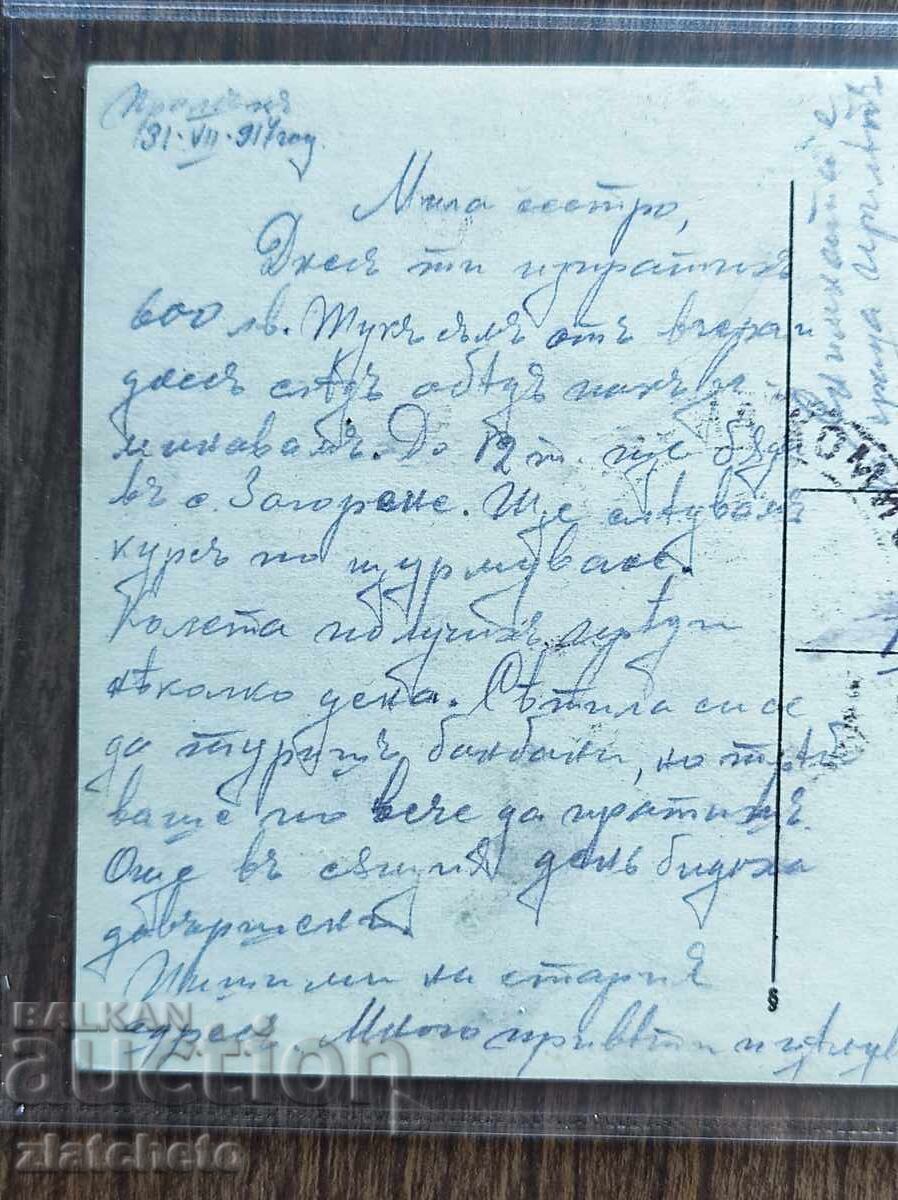 31·VII·917 год.
Мила сестро,
Днесъ ти изпратихъ
600 лв. Тукъ съмъ отъ вчера и
днесъ слѣдъ обѣдъ пакъ за-
минавамъ. До 12 т. ще бѫда
въ с. Загорене. Ще слѣдвамъ
курсъ по щурмуване.
Колета получихъ прѣди
нѣколко дена. Сѣтила си се
да туришъ бонбони, но трѣб
ваше по вече да пратишъ.
Още въ сѫщия день бидоха
довършени.
Пиши ми на стария
адресъ. Много привѣти и цѣлув
S
BALKAN
auction
zlatcheto